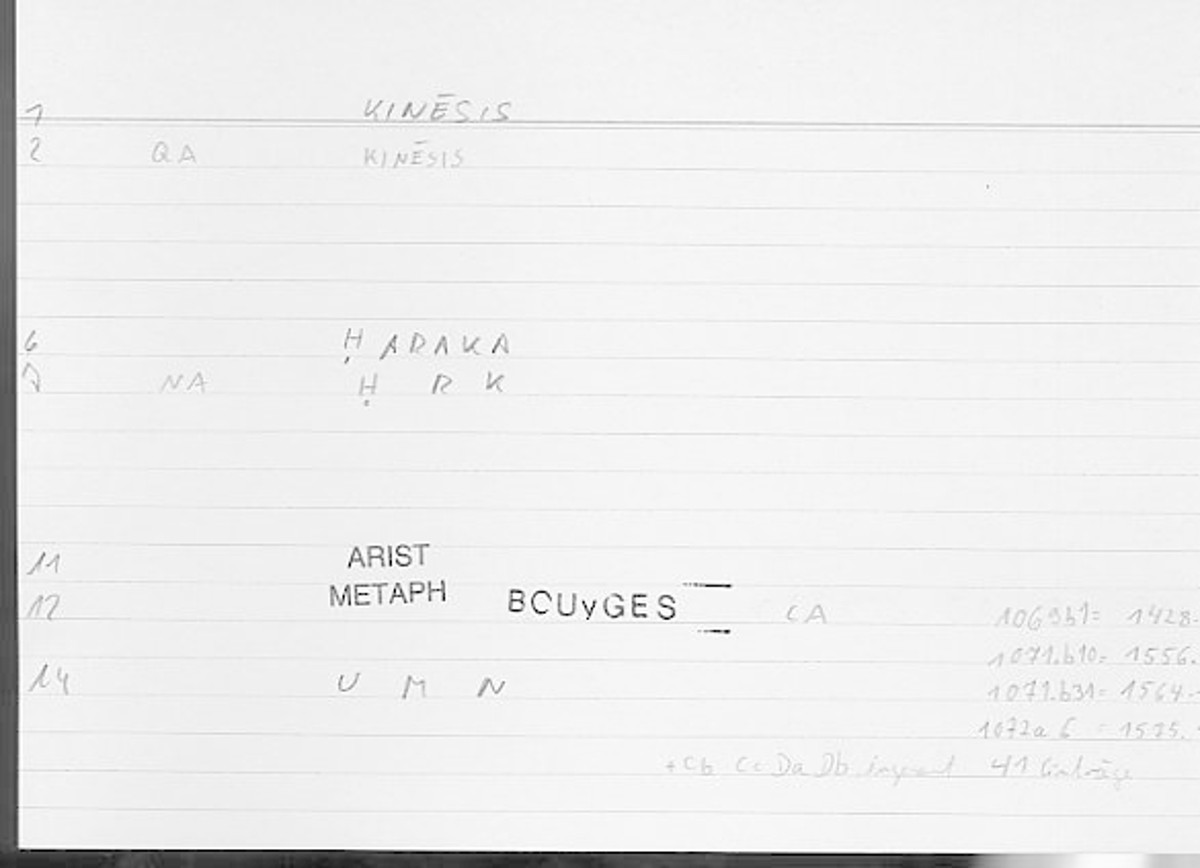 1 KINĒSIS
2 QA KINĒSIS
6 ḤARAKA
7 NA Ḥ R K
11 ARIST
12 METAPH BOUyGES CA 1069b1= 1428.
1071.b10= 1556.
14 U M N 1071.b31= 1564.
1072a 6 =
+Cb Cc Da Db insgesamt 41 Einträge